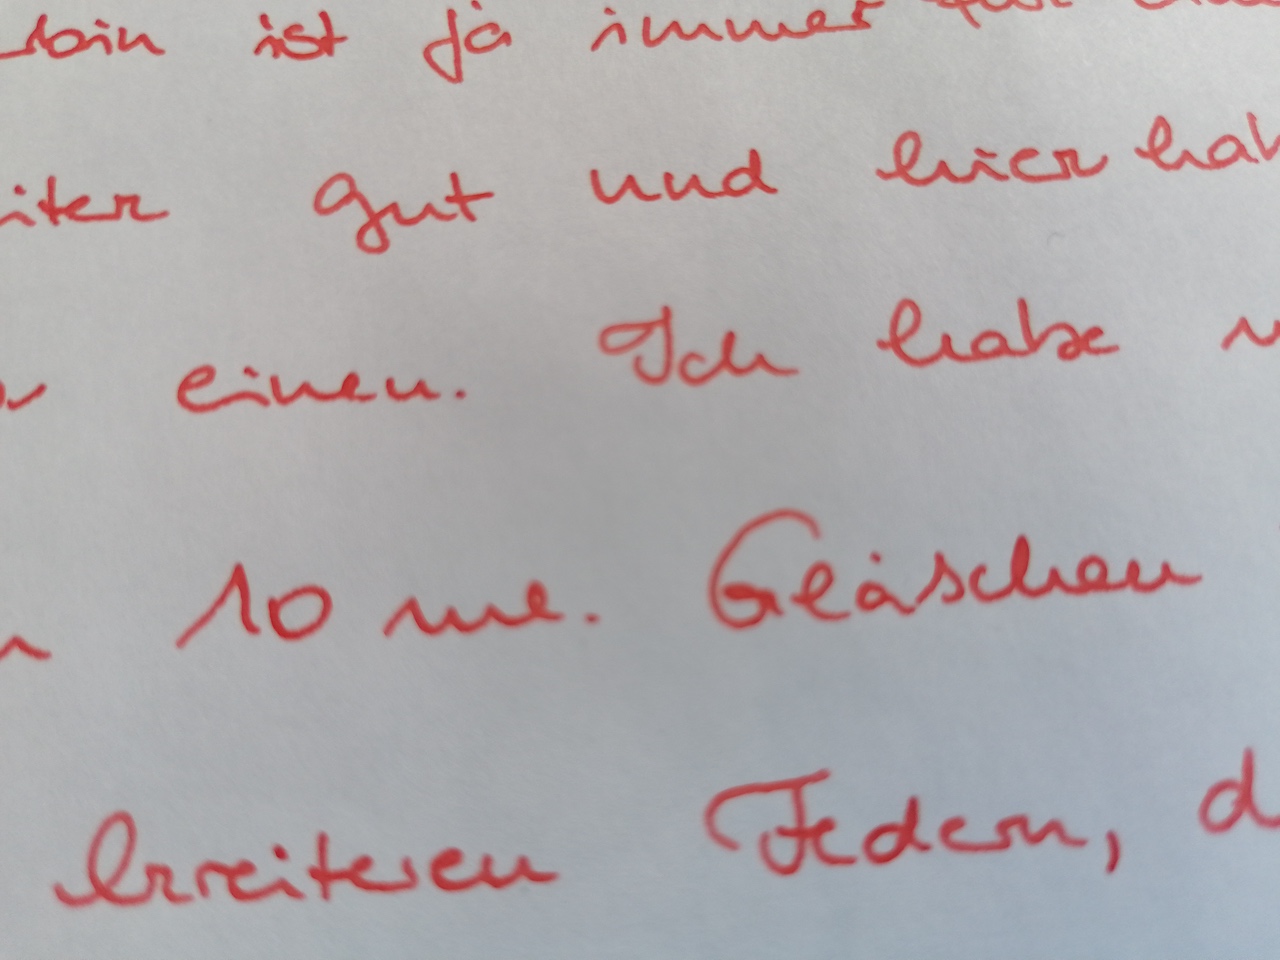 ist ja immer für
iter gut und hier hab
einen. Ich habe
10 ml. Gläschen
breiteren Federn, d